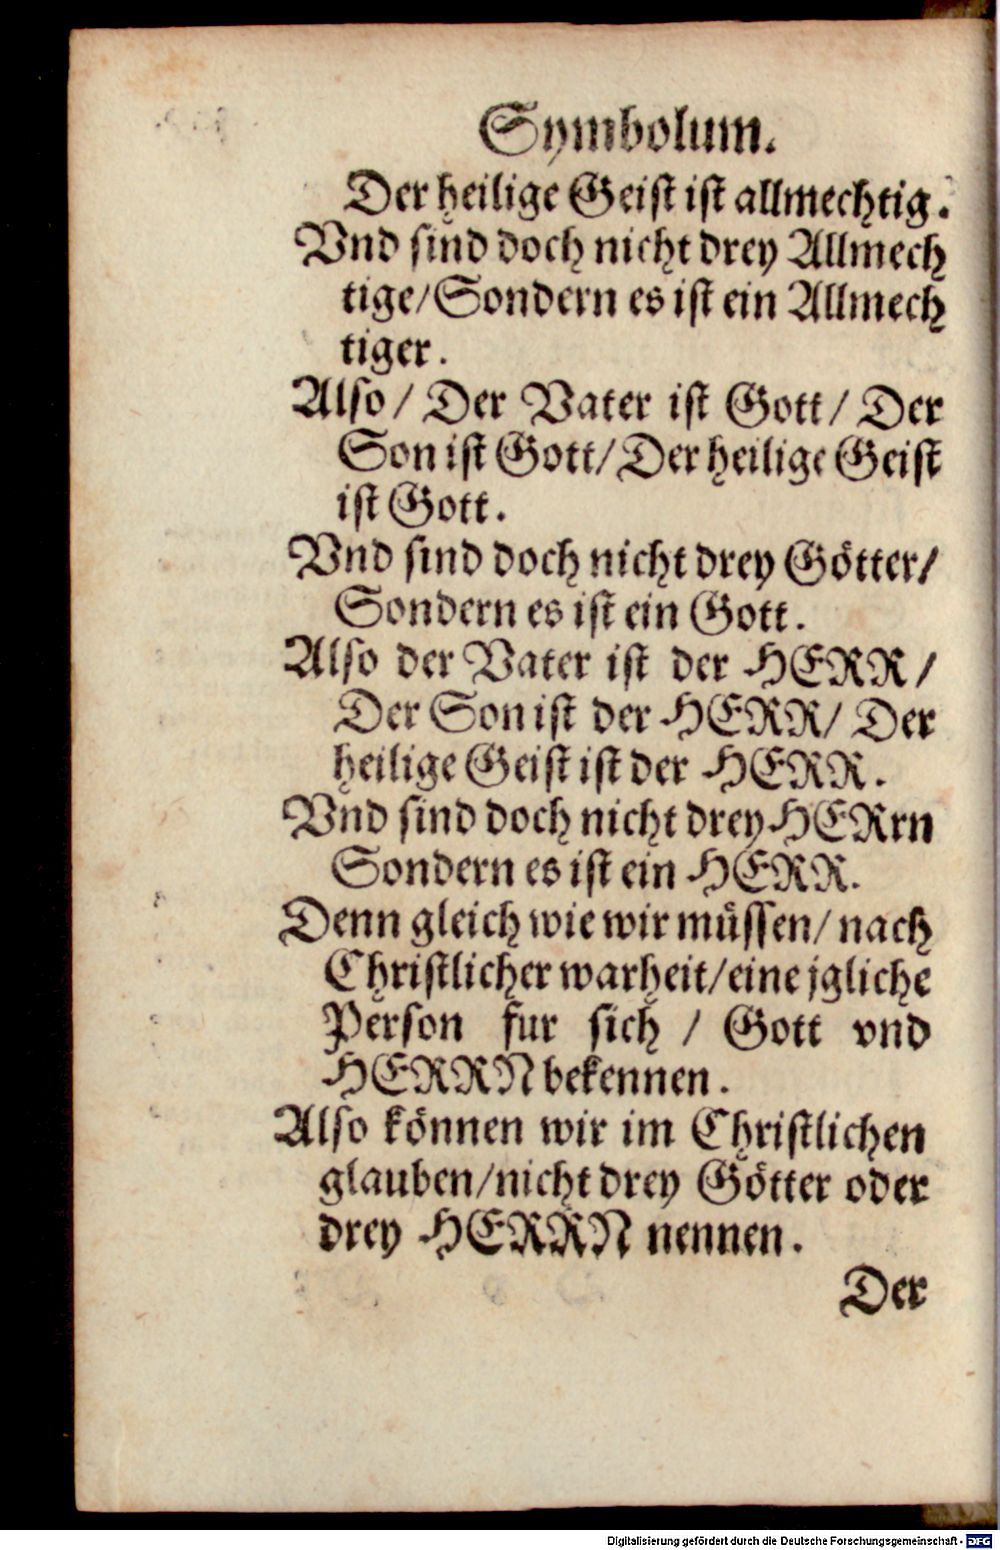 Symbolum.
Der heilige Geiſt iſt allmechtig.
Vnd ſind doch nicht drey Allmech
tige/Sondern es iſt ein Allmech
tiger.
Alſo/ Der Vater iſt Gott/ Der
Son iſt Gott/Der heilige Geiſt
iſt Gott.
Vnd ſind doch nicht drey Götter/
Sondern es iſt ein Gott.
Alſo der Vater iſt der HERR/
Der Son iſt der HERR/ Der
heilige Geiſt iſt der HERR.
Vnd ſind doch nicht drey HERrn
Sondern es iſt ein HERR.
Denn gleich wie wir müſſen/ nach
Chriſtlicher warheit/eine jgliche
Perſon fur ſich / Gott vnd
HERRN bekennen.
Alſo können wir im Chriſtlichen
glauben/nicht drey Götter oder
drey HERRN nennen.
Der
Digitalisierung gefördert durch die Deutsche Forschungsgemeinschaft - DFG